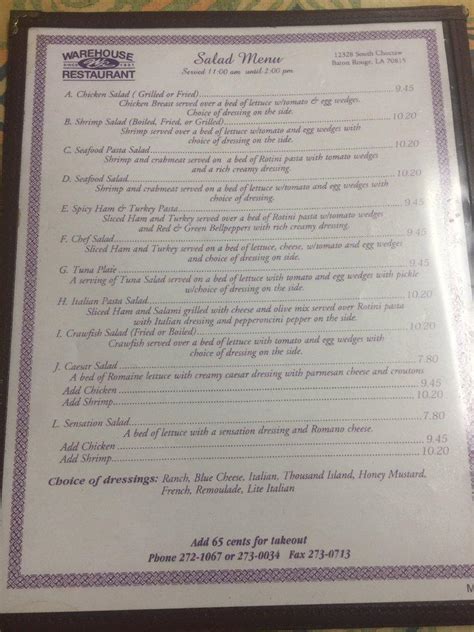 WAREHOUSE
SINCE 1981
RESTAURANT
Salad Menu
Served 11:00 am until 2:00 pm
12528 South Choctaw
Baton Rouge, LA 70815
A. Chicken Salad ( Grilled or Fried) 9.45
Chicken Breast served over a bed of lettuce w/tomato & egg wedges.
Choice of dressing on the side.
B. Shrimp Salad (Boiled, Fried, or Grilled) 10.20
Shrimp served over a bed of lettuce w/tomato and egg wedges with
choice of dressing on the side.
C. Seafood Pasta Salad 10.20
Shrimp and crabmeat served on a bed of Rotini pasta with tomato wedges
and a rich creamy dressing.
D. Seafood Salad 10.20
Shrimp and crabmeat served on a bed of lettuce w/tomato and egg wedges with
choice of dressing.
E. Spicy Ham & Turkey Pasta 9.45
Sliced Ham and Turkey served over a bed of Rotini pasta with tomato wedges
and Red & Green Bellpeppers with rich creamy dressing.
F. Chef Salad 9.45
Sliced Ham and Turkey served on a bed of lettuce, cheese, w/tomato and egg wedges
with choice of dressing on the side.
G. Tuna Plate 9.45
A serving of Tuna Salad served on a bed of lettuce with tomato and egg wedges with pickle
w/choice of dressing on the side.
H. Italian Pasta Salad 10.20
Sliced Ham and Salami grilled with cheese and olive mix served over Rotini pasta
with Italian dressing and pepperoncini pepper on the side.
I. Crawfish Salad (Fried or Boiled)
Crawfish served over a bed of lettuce with tomato and egg wedges with
choice of dressing on the side.
J. Caesar Salad 7.80
A bed of Romaine lettuce with creamy caesar dressing with parmesan cheese and croutons
Add Chicken 9.45
Add Shrimp 10.20
L. Sensation Salad 7.80
A bed of lettuce with a sensation dressing and Romano cheese.
Add Chicken 9.45
Add Shrimp 10.20
Choice of dressings: Ranch, Blue Cheese, Italian, Thousand Island, Honey Mustard,
French, Remoulade, Lite Italian
Add 65 cents for takeout
Phone 272-1067 or 273-0034 Fax 273-0713